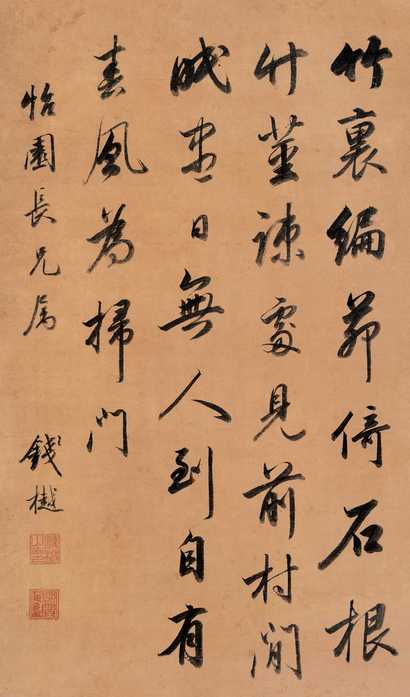 竹裏編茅倚石根
竹莖疎處見前村閒
眠盡日無人到自有
春風為掃門
怡園長兄屬
錢樾